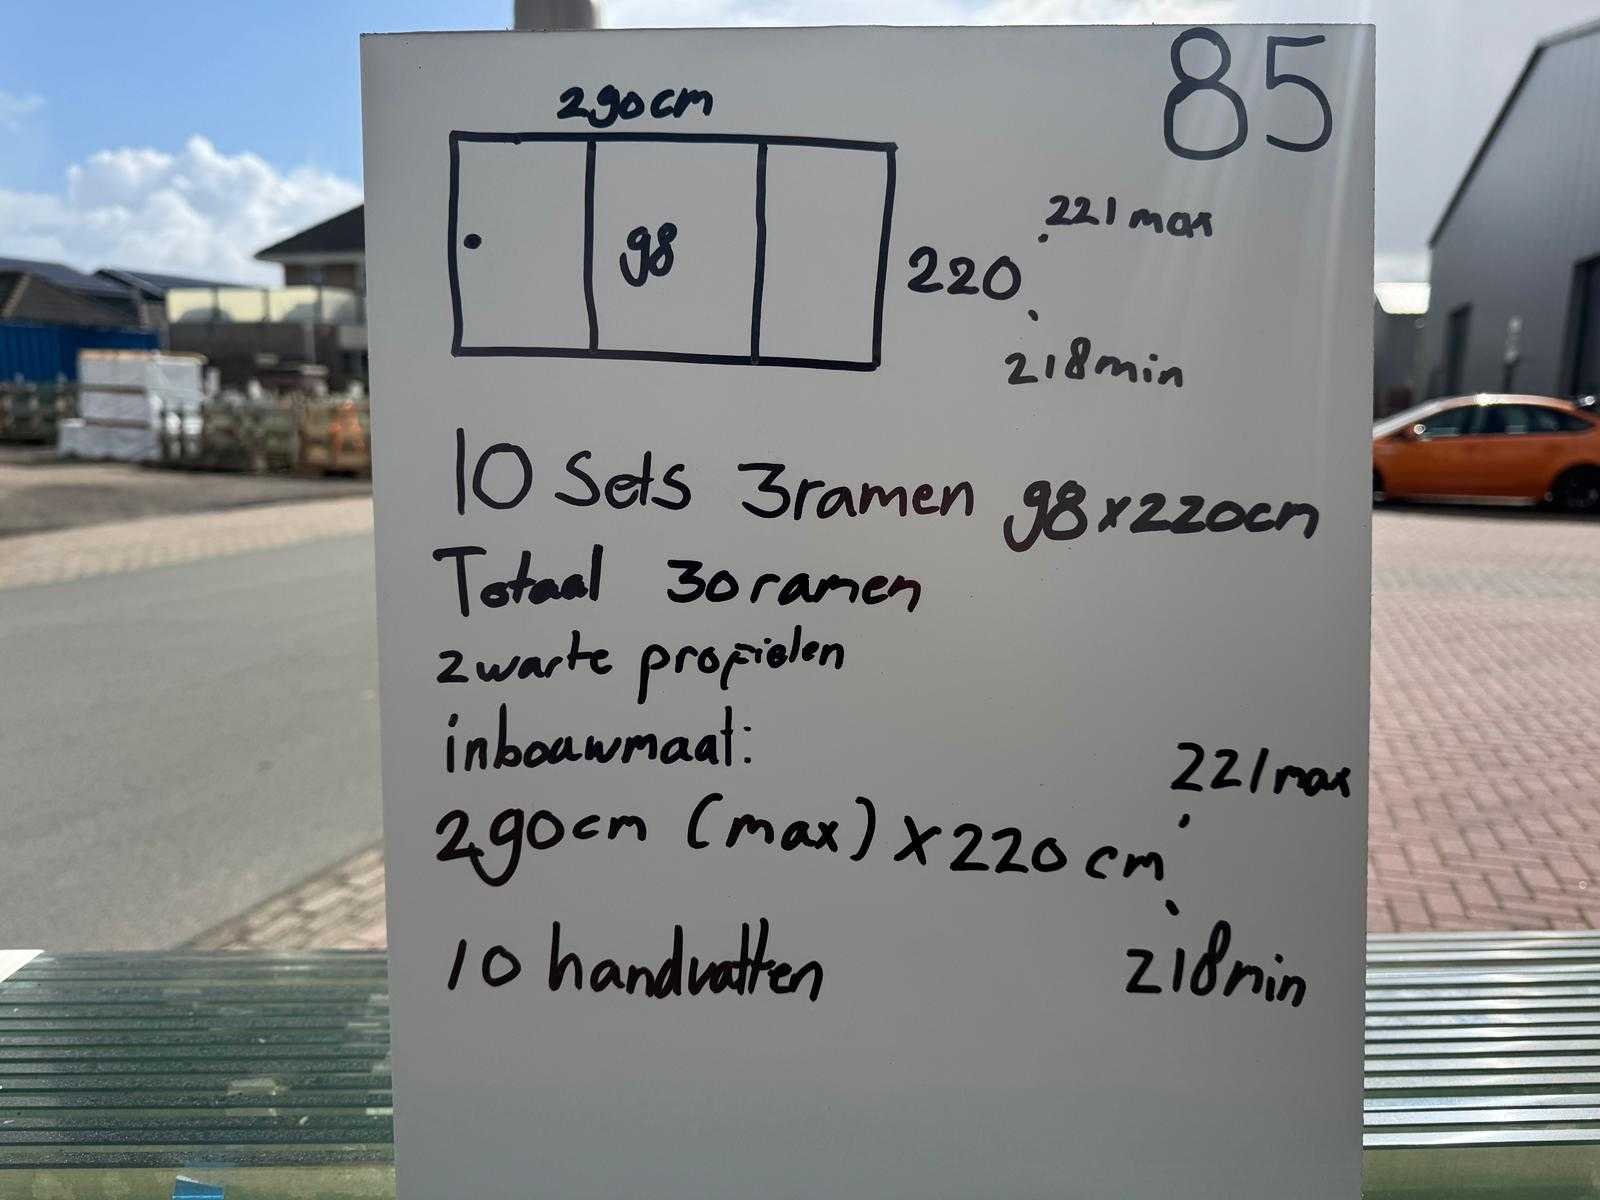 85
290cm
98
220
221 max
218min
10 Sets 3ramen 98x220cm
Totaal 30ramen
zwarte profielen
inbouwmaat:
290cm (max) x 220 cm
221max
218min
10 handvatten